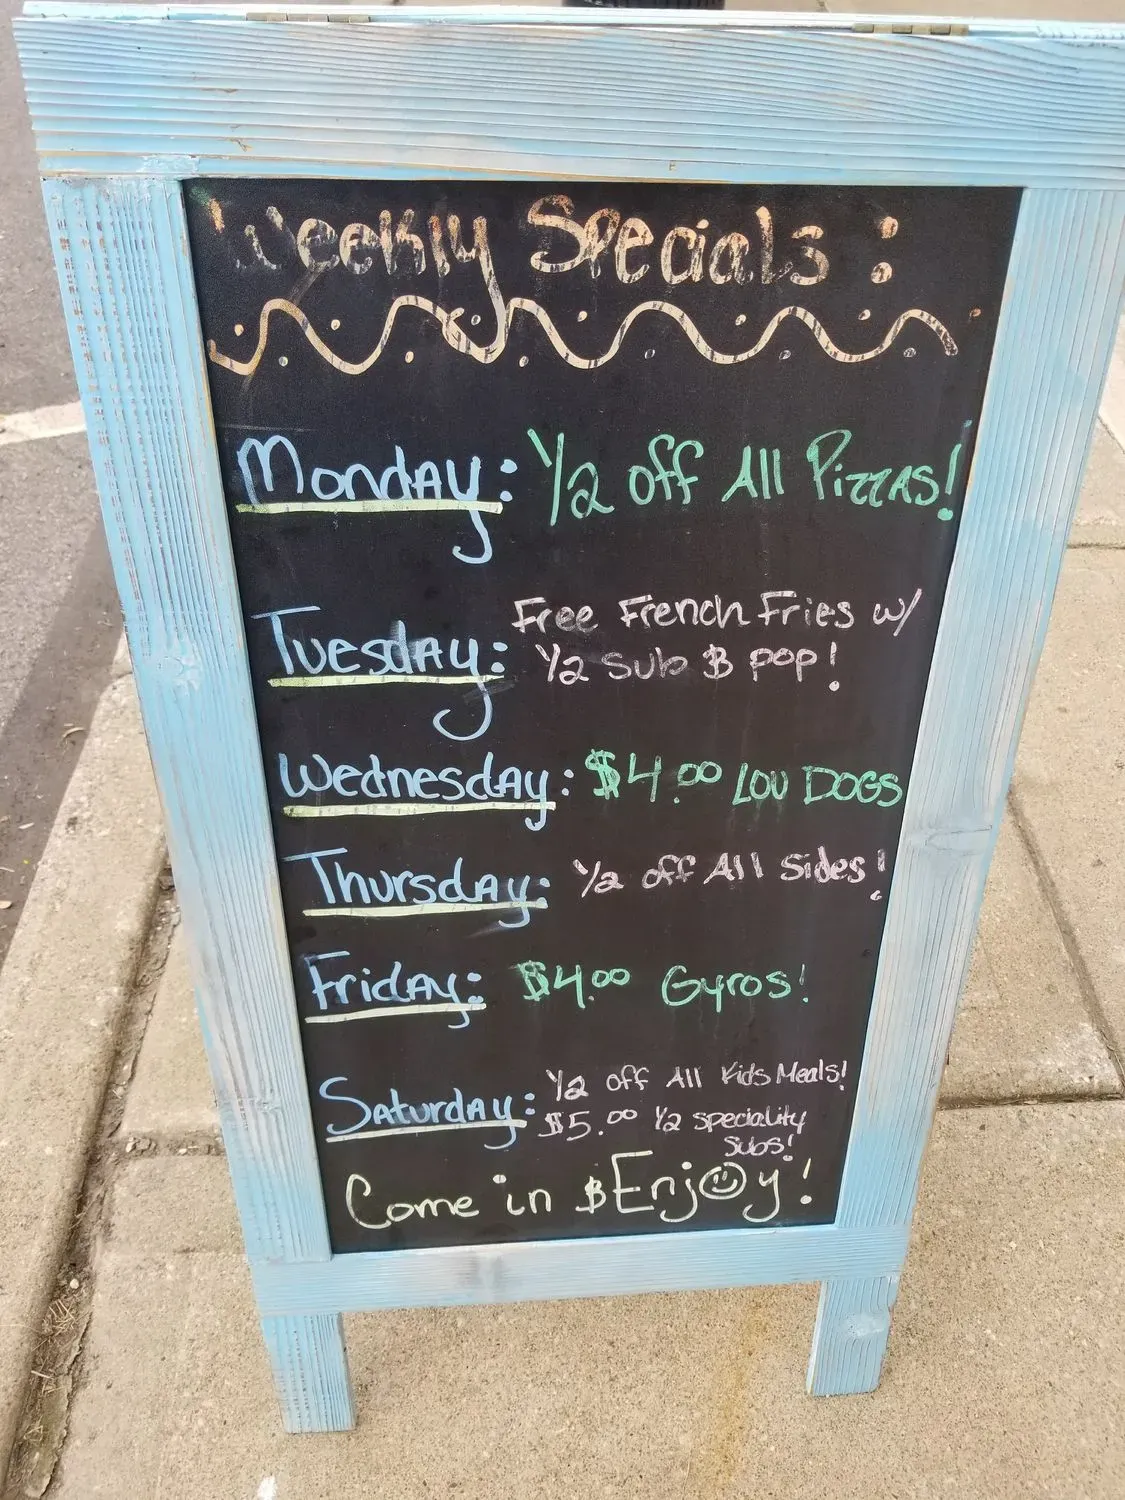 Weekly Specials:
Monday: 1/2 off All Pizzas!
Tuesday: Free French Fries w/
1/2 Sub & pop!
Wednesday: $4.00 Lou Dogs
Thursday: 1/2 off All Sides!
Friday: $4.00 Gyros!
Saturday: 1/2 off All Kids Meals!
$5.00 1/2 speciality
subs!
Come in & Enjoy!